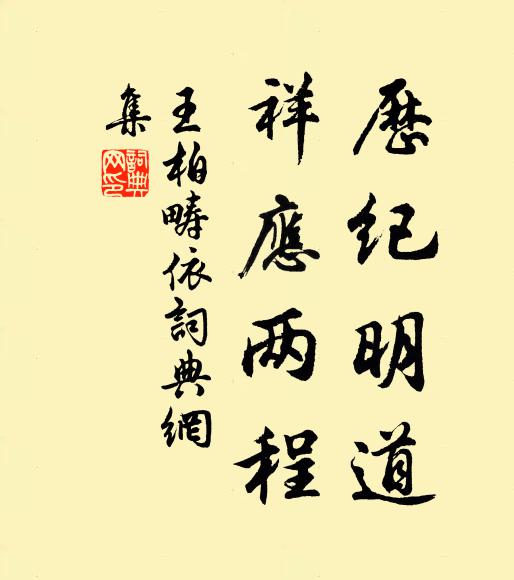 歷紀明道
祥應两程
王柏疇依詞典網
集
詞典
网印